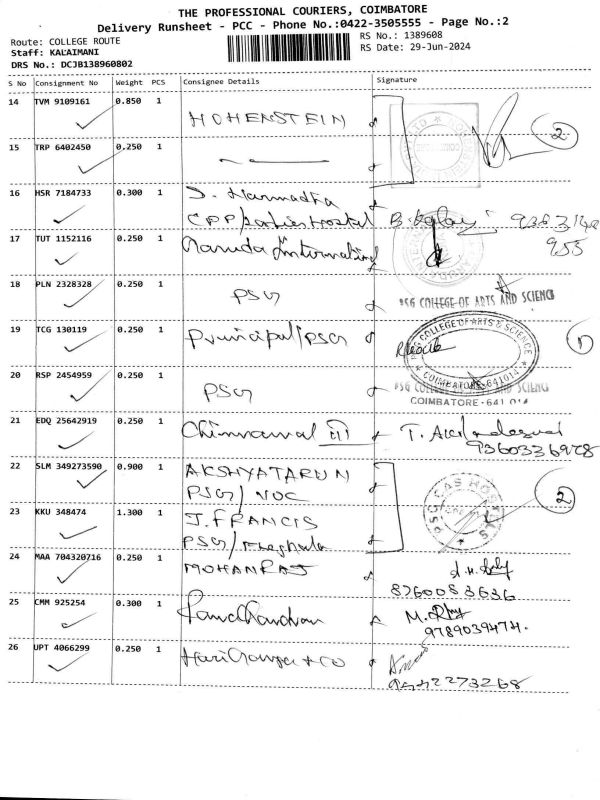 THE PROFESSIONAL COURIERS, COIMBATORE
Delivery Runsheet - PCC - Phone No.:0422-3505555 - Page No.:2
Route: COLLEGE ROUTE
RS No.: 1389608
Staff: KALAIMANI
RS Date: 29-Jun-2024
DRS No.: DCJB138960802
S No Consignment No Weight PCS Consignee Details Signature
14 TVM 9109161 0.850 1 HOHENSTEIN 2
15 TRP 6402450 0.250 1
16 HSR 7184733 0.300 1 J. Harmadha
CPP/Ladies Hostel
17 TUT 1152116 0.250 1 International 955
18 PLN 2328328 0.250 1 PSG
PSG COLLEGE OF ARTS AND SCIENCE
19 TCG 130119 0.250 1 Principal/PSG
PSG COLLEGE OF ARTS & SCIENCE
COIMBATORE-641014
1
20 RSP 2454959 0.250 1 PSG
COIMBATORE-641 014
21 EDQ 25642919 0.250 1
9360336978
22 SLM 349273590 0.900 1 AKSHYATARUN
PSG/
PSG CAS HOSTELS
2
23 KKU 348474 1.300 1 J. FRANCIS
PSG/
24 MAA 704320716 0.250 1 MOHANRAJ
8760083636
25 CMM 925254 0.300 1
M.
9789039474
26 UPT 4066299 0.250 1